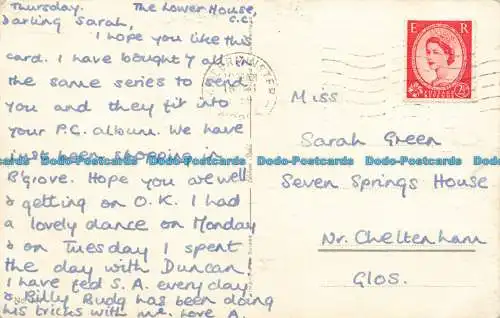 Thursday. The Lower House,
C.C.
Darling Sarah,
I hope you like this
card. I have bought 7 all
the same series to send
you and they fit into
your P.C. album. We have
just been shopping in
B'grove. Hope you are well
& getting on O.K. I had
a lovely dance on Monday
& on Tuesday I spent
the day with Duncan
I have fed S.A. every day
& Billy Budg has been doing
his tricks with me. Love A.
E R
POSTAGE REVENUE
2½D
Miss
Sarah Green
Seven Springs House
Nr. Cheltenham
Glos.
Dodo-Postcards Dodo-Postcards Dodo-Postcards Dodo-Postcards